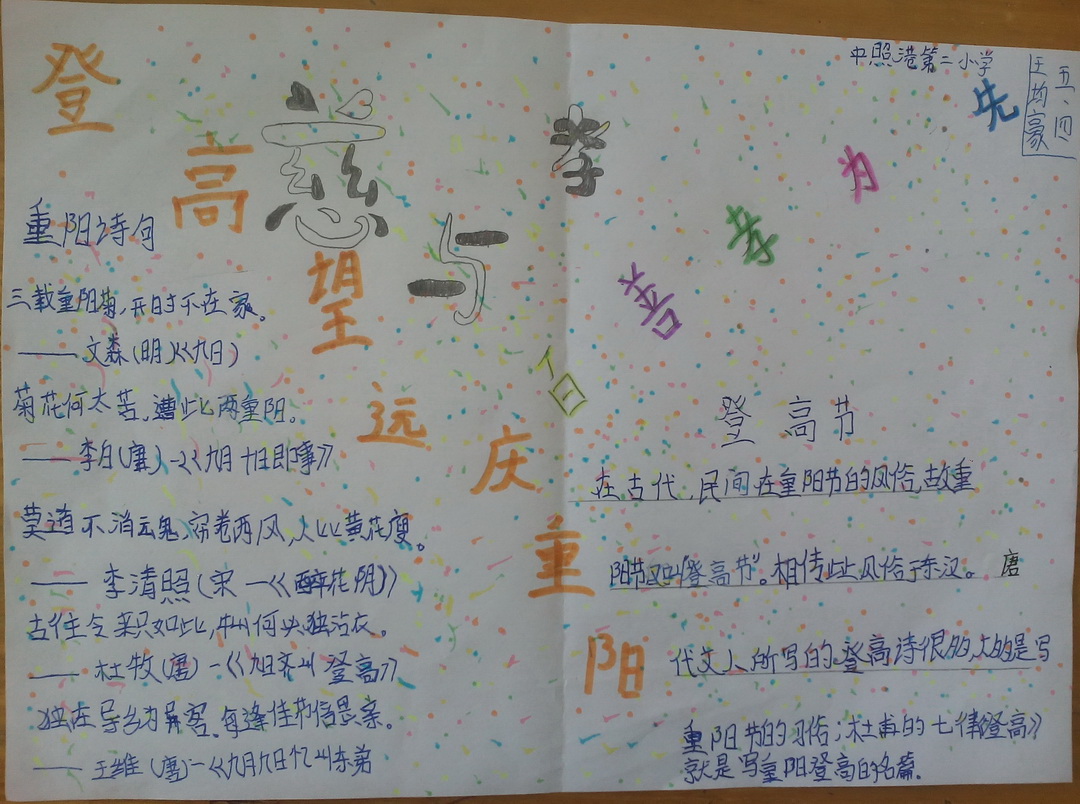 登高望远庆重阳
慈与孝
百善孝为先
中照港第二小学
五、四
王均豪
重阳诗句
三载重阳菊，开时不在家。
——文森(明)《九日》
菊花何太苦，遭此两重阳。
——李白(唐)-《九月十日即事》
莫道不消魂，帘卷西风，人比黄花瘦。
——李清照(宋-《醉花阴》)
古往今来只如此，牛山何必独沾衣。
——杜牧(唐)-《九日齐山登高》
独在异乡为异客，每逢佳节倍思亲。
——王维(唐)-《九月九日忆山东弟
登高节
在古代，民间在重阳节的风俗，故重
阳节又叫"登高节"。相传此风俗于东汉。唐
代文人所写的登高诗很多，大多的是写
重阳节的习俗；杜甫的七律《登高》
就是写重阳登高的名篇。